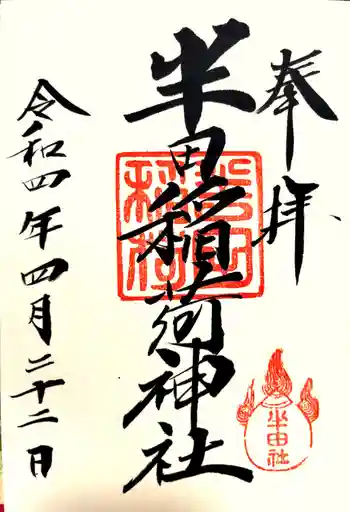 奉拝
半田稲荷神社
令和四年四月二十二日
半田社